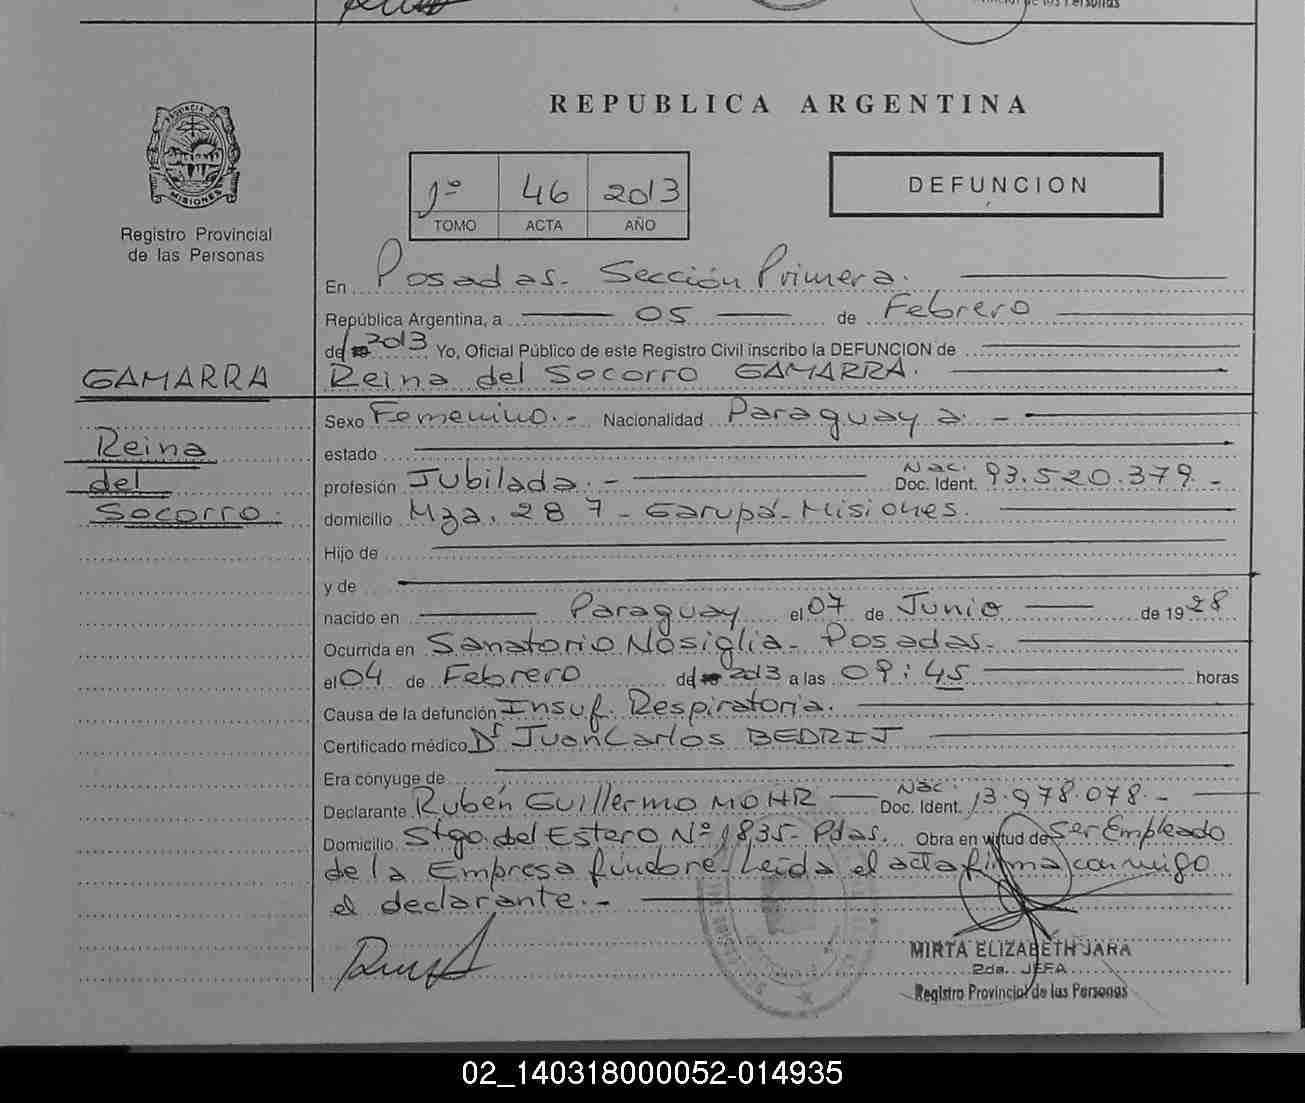 de las Personas
REPUBLICA ARGENTINA
PROVINCIA DE
MISIONES
Registro Provincial
de las Personas
1º 46 2013
TOMO ACTA AÑO
DEFUNCION
En Posadas.- Sección Primera.
República Argentina, a 05 de Febrero
del 2013 Yo, Oficial Público de este Registro Civil inscribo la DEFUNCION de
GAMARRA Reina del Socorro GAMARRA.
Reina
del
Socorro.
Sexo Femenino.- Nacionalidad Paraguaya.-
estado
profesión Jubilada.- Nac. Doc. Ident. 93.520.379.-
domicilio Mza. 287 - Garupá - Misiones.
Hijo de
y de
nacido en Paraguay el 07 de Junio de 1928
Ocurrida en Sanatorio Nosiglia.- Posadas.-
el 04 de Febrero del 2013 a las 09:45 horas
Causa de la defunción Insuf. Respiratoria.
Certificado médico Dr Juan Carlos BEDRIJ
Era cónyuge de
Declarante Rubén Guillermo MOHR Nac. Doc. Ident. 13.978.078.-
Domicilio Stgo. del Estero Nº 1835- Pdas. Obra en virtud de Ser Empleado
de la Empresa fúnebre. Leída el acta firma conmigo
el declarante.-
MIRTA ELIZABETH JARA
2da. JEFA
Registro Provincial de las Personas
02_140318000052-014935